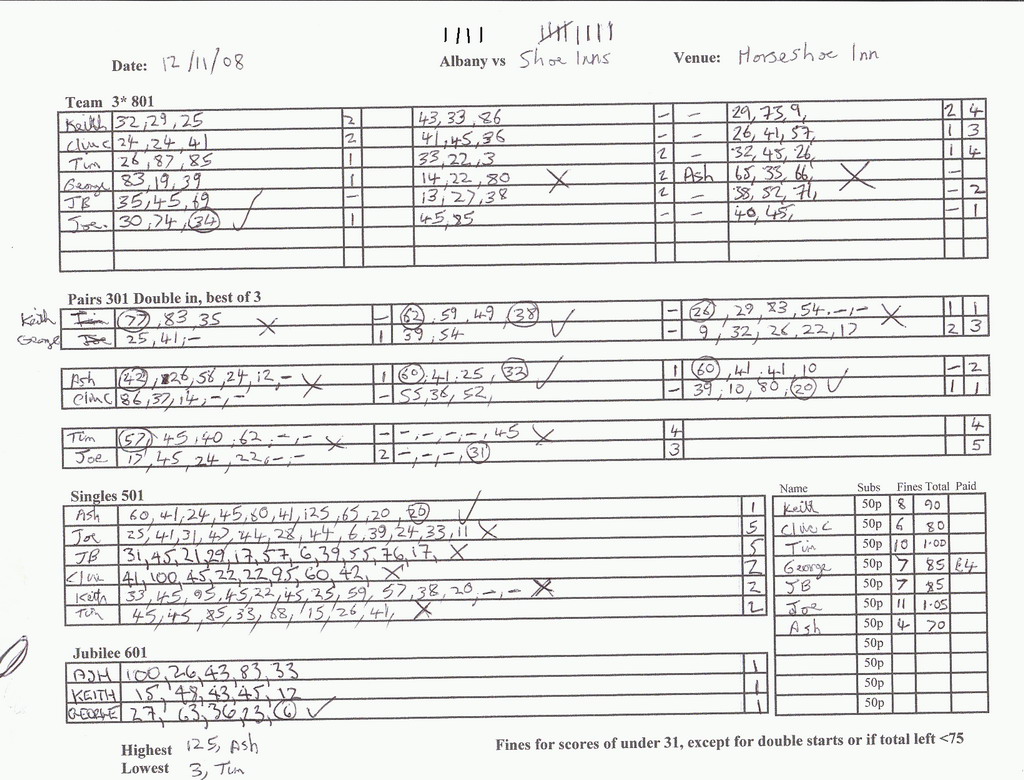 Date: 12/11/08 Albany vs Shoe Inns Venue: Horseshoe Inn
Team 3* 801
Keith 32,29,25 2 43,33,86 - - 29,73,9, 2 4
Clive C 24,24,41 2 41,45,36 - - 26,41,57, 1 3
Tim 26,87,85 1 33,22,3 2 - 32,45,26, 1 4
George 83,19,39 1 14,22,80 X 2 Ash 65,33,66, X -
JB 35,45,69 - 13,27,38 2 - 38,52,71, - 2
Joe. 30,74,34 ✓ 1 45,85 - - 40,45, - 1
Pairs 301 Double in, best of 3
Keith Tim 77,83,35 X - 62,59,49,38 ✓ - 26,29,83,54,-,- X 1 1
George Joe 25,41,- 1 39,54 - 9,32,26,22,17 2 3
Ash 42,26,58,24,12,- X 1 60,41,25,32 ✓ 1 60,41,41,10 - 2
Clive C 86,37,14,-,- - 55,36,52, - 39,10,80,20 ✓ 1 1
Tim 57,45,40,62,-,- X - -,-,-,-,45 X 4 4
Joe 17,45,24,22,-,- 2 -,-,-,31 3 5
Singles 501
Ash 60,41,24,45,60,41,125,65,20,20 ✓ 1
Joe 25,41,31,47,44,28,44,6,39,24,33,11 X 5
JB 31,45,21,29,17,57,6,39,55,76,17, X 5
Clive 41,100,45,22,22,95,60,42, X 2
Keith 33,45,95,45,22,45,25,59,57,38,20,-,- X 2
Tim 45,45,85,33,68,15,26,41, X 2
Name Subs Fines Total Paid
Keith 50p 8 90
Clive C 50p 6 80
Tim 50p 10 1.00
George 50p 7 85 £4
JB 50p 7 85
Joe 50p 11 1.05
Ash 50p 4 70
50p
50p
50p
Jubilee 601
ASH 100,26,43,83,33 1
KEITH 15,48,43,45,12 1
GEORGE 27,63,36,23,6 ✓ 1
Highest 125, Ash
Lowest 3, Tim
Fines for scores of under 31, except for double starts or if total left <75